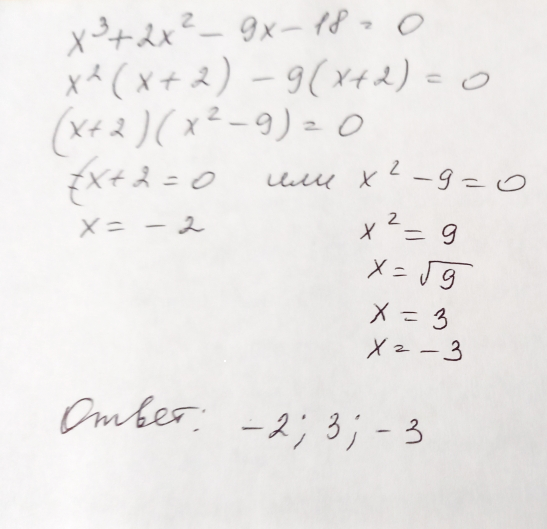 x³+2x²-9x-18=0
x²(x+2)-9(x+2)=0
(x+2)(x²-9)=0
x+2=0 или x²-9=0
x=-2
x²=9
x=√9
x=3
x=-3
Ответ: -2; 3; -3